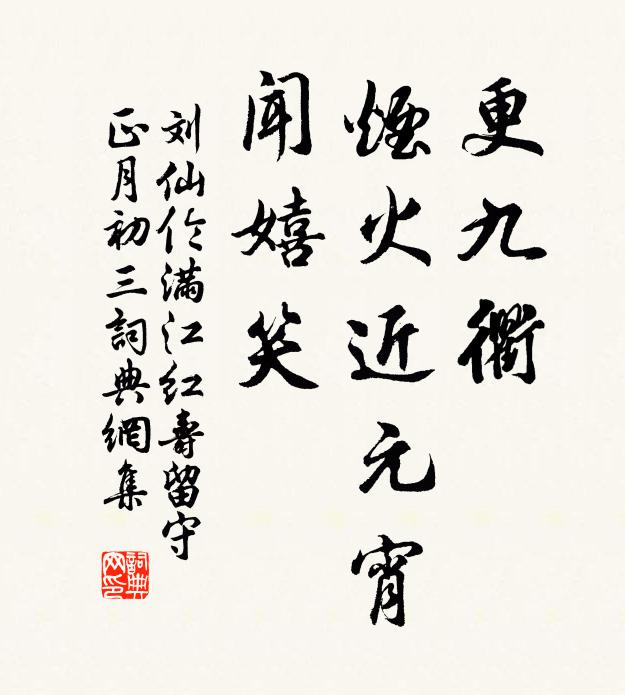 更九衢
煙火近元宵
聞嬉笑
刘仙伦满江红壽留守
正月初三詞典網集
詞典网印